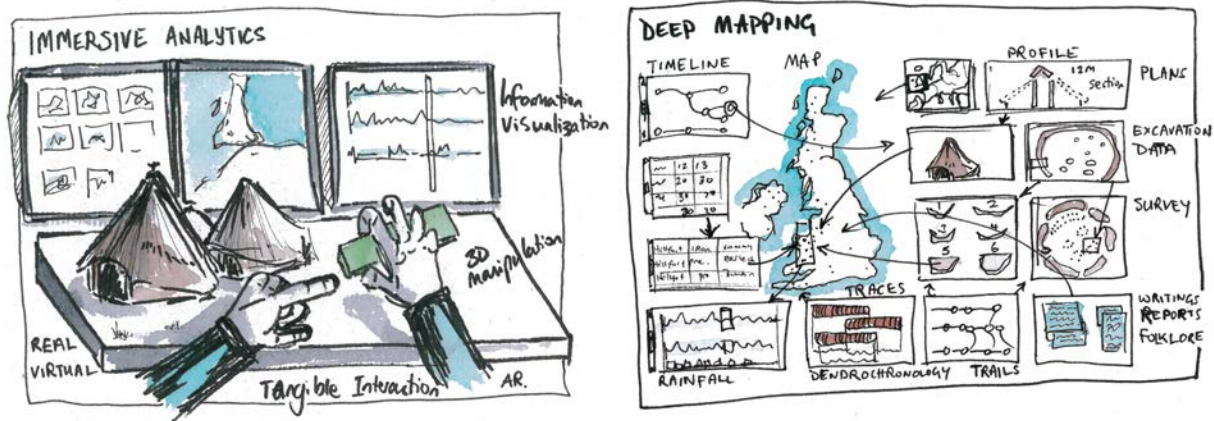 IMMERSIVE ANALYTICS
Information
Visualization
3D
manipulation
REAL
VIRTUAL
Tangible Interaction
AR.
DEEP MAPPING
TIMELINE
MAP
PROFILE
12M
section
PLANS
EXCAVATION
DATA
12 13
20 30
1 2
3 4
5 6
SURVEY
Hillfort
Hillfort
Hillfort
TRACES
WRITINGS
REPORTS
FOLKLORE
RAINFALL
DENDROCHRONOLOGY
TRAILS